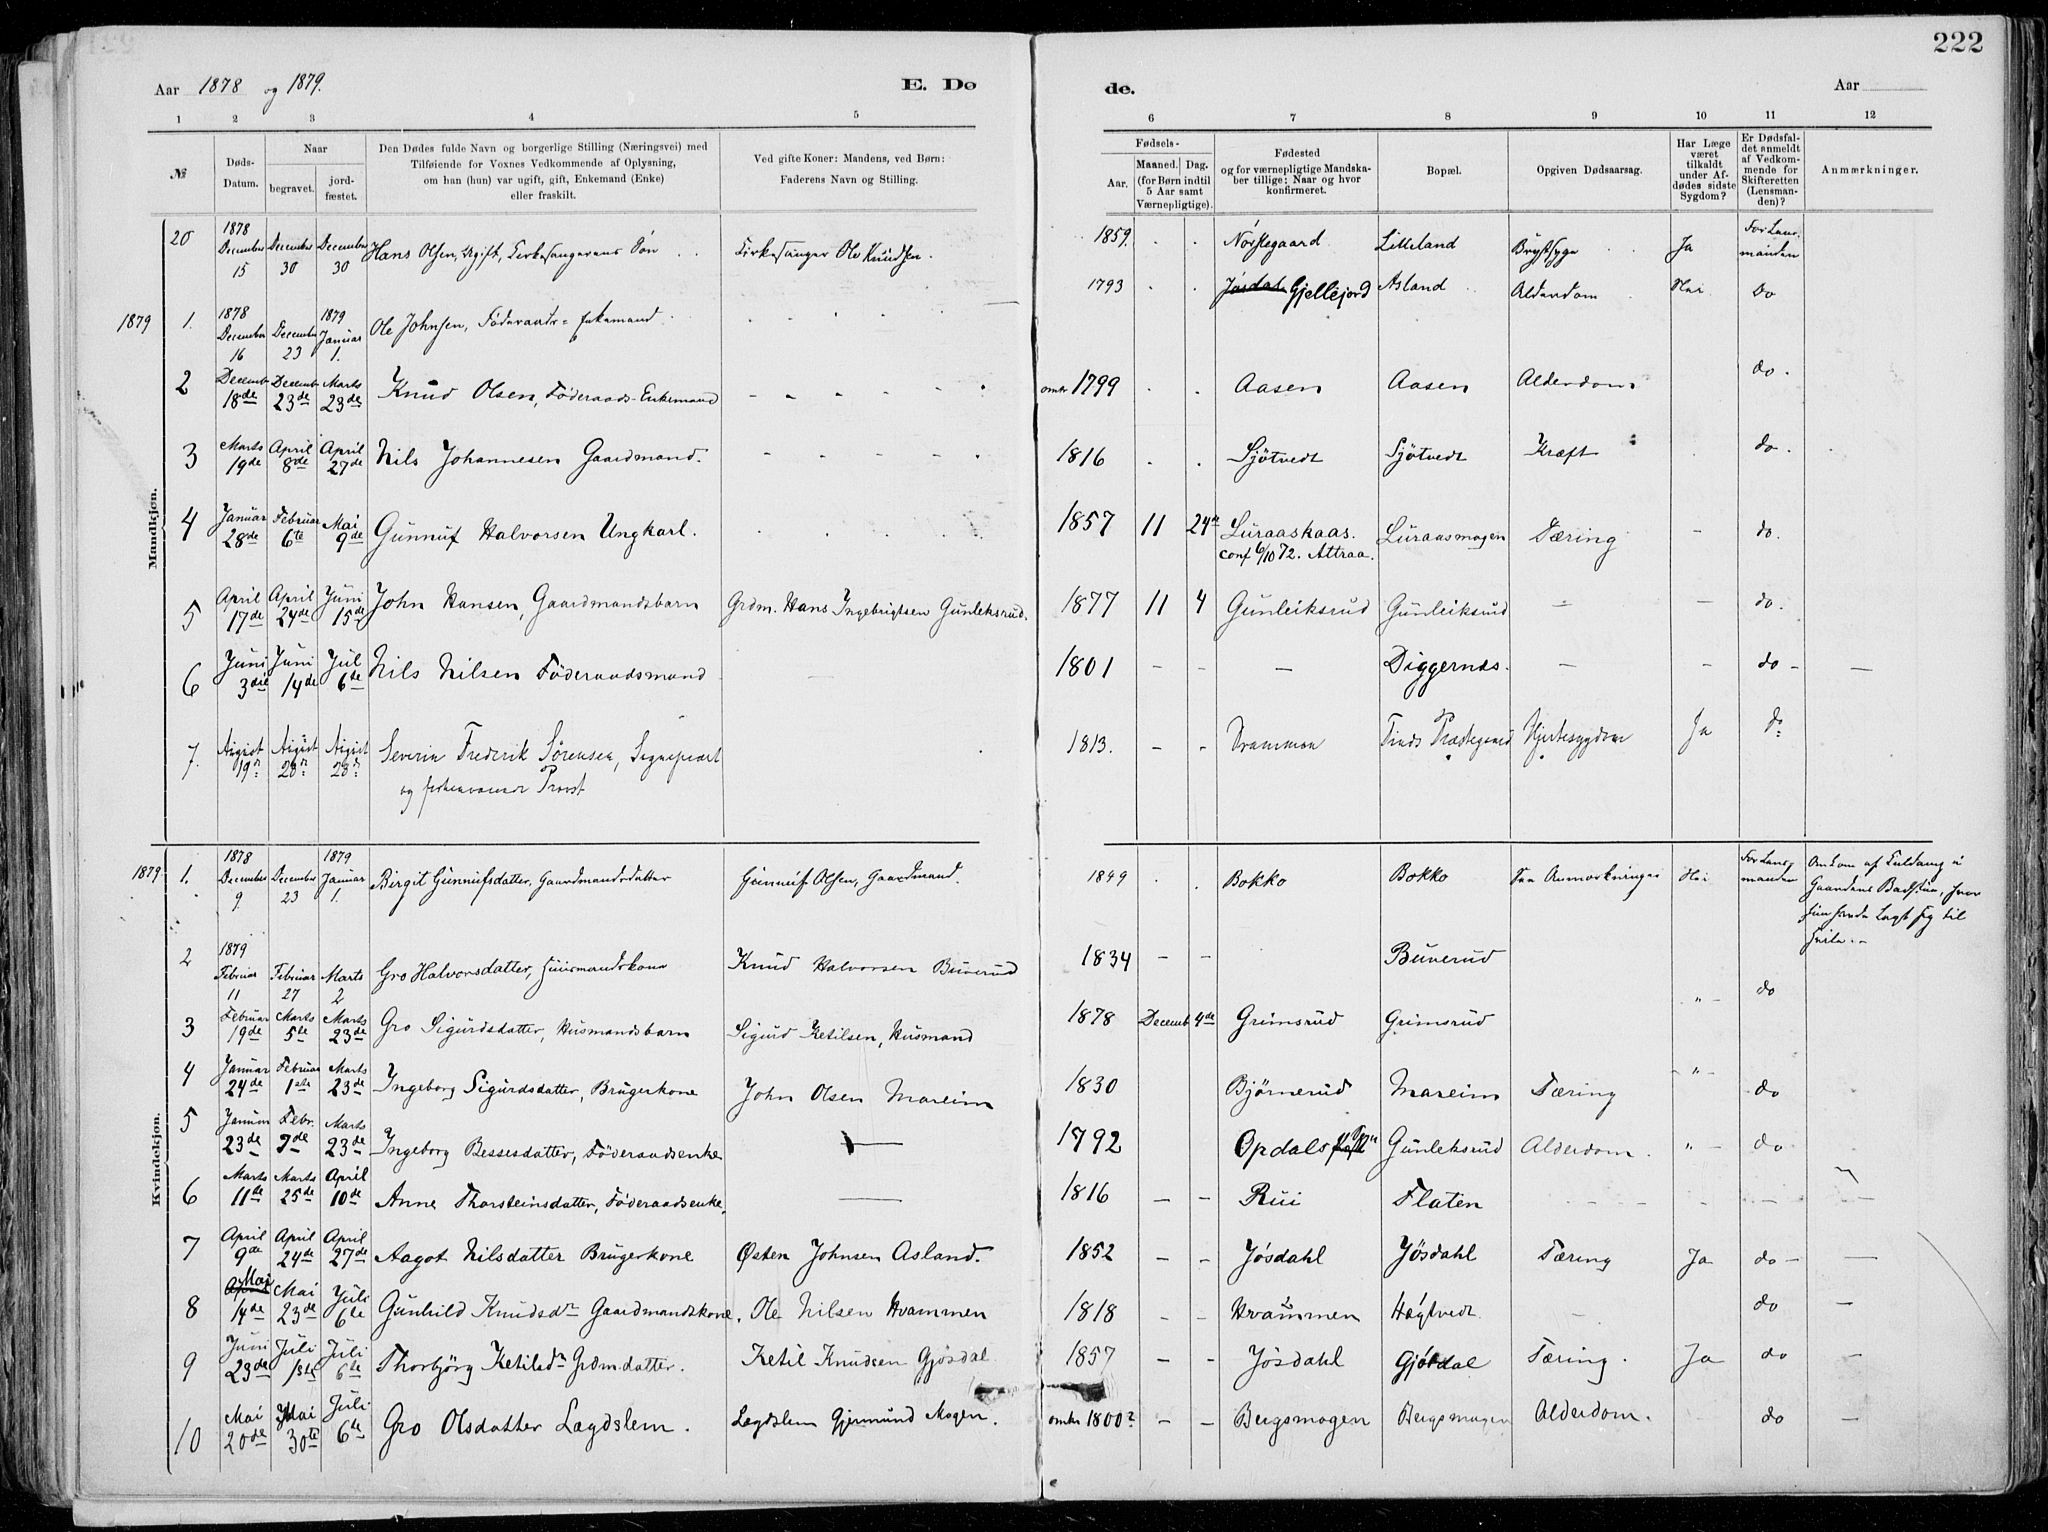 222
Aar 1878 og 1879.
E. Dø
de.
Aar
1 2 3 4 5 6 7 8 9 10 11 12
№
Døds-
Datum.
Naar
begravet.
jord-
fæstet.
Den Dødes fulde Navn og borgerlige Stilling (Næringsvei) med
Tilføiende for Voxnes Vedkommende af Oplysning,
om han (hun) var ugift, gift, Enkemand (Enke)
eller fraskilt.
Ved gifte Koner: Mandens, ved Børn:
Faderens Navn og Stilling.
Fødsels-
Aar.
Maaned. Dag.
(for Børn indtil
5 Aar samt
Værnepligtige).
Fødested
og for værnepligtige Mandska-
ber tillige: Naar og hvor
konfirmeret.
Bopæl.
Opgiven Dødsaarsag.
Har Læge
været
tilkaldt
under Af-
dødes sidste
Sygdom?
Er Dødsfal-
det anmeldt
af Vedkom-
mende for
Skifteretten
(Lensman-
den)?
Anmærkninger.
Mandkjøn.
20 1878 December 15 December 30 December 30 Hans Olsen, Ugift, Kirkesangerens Søn Kirkesanger Ole Knudsen. 1859. Nørstegaard Litleland Brystsyge Ja For Lens-
manden
1879 1. 1878 December 16 December 23 1879 Januar 1. Ole Johnsen, Föderaads= Enkemand 1793 Gjellejord Asland Alderdom Nei Do
2 Decemb 18de Decemb 23de Marts 23de Knud Olsen, Föderaads-Enkemand omtr 1799 Aasen Aasen Alderdom do.
3 Marts 19de April 8de April 27de Nils Johannesen Gaardmand. 1816 Sjötvedt Sjötvedt Kræft do.
4 Januar 28de Februar 6te Mai 9de Gunnuf Halvorsen Ungkarl. 1857 11 24de Luraaskaas. Luraasmogen Tæring - do.
conf 6/10 72. Attraa.
5 April 17de April 24de Juni 15de John Hansen, Gaardmandsbarn Grdm. Hans Ingebrigtsen Gunleksrud. 1877 11 4 Gunleiksrud Gunleiksrud - - do.
6 Juni 3die Juni 14de Jul 6te Nils Nilsen Föderaadsmand 1801 - - - Diggernæs. - - do - -
7. August 19de August 28de August 28de Severin Frederik Sörensen, Sognepræst
og forhenværende Provst 1813. - - Drammen Tinds Præstegaard Hjertesygdom Ja do
Kvindekjøn.
1879 1. 1878 December 9 December 23 1879 Januar 1. Birgit Gunnufsdatter, Gaardmandsdatter Gunnuf Olsen, Gaardmand. 1849 Bokko Bokko Se Anmærkningen Nei For Lens-
manden Omkom af Kuldamp i
Gaardens Badstue, hvor
hun havde lagt sig til
hvile.-
2 1879 Februar 11 Februar 27 Marts 2 Gro Halvorsdatter, Huusmandskone Knud Halvorsen Buverud 1834 - - Buverud " - do
3 Februar 19de Marts 5te Marts 23de Gro Sigurdsdatter, Husmandsbarn Sigurd Ketilsen, Husmand 1878 Decemb 4de Grimsrud Grimsrud
4 Januar 24de Februar 1ste Marts 23de Ingeborg Sigurdsdatter, Brugerkone John Olsen Mareim 1830 Bjørnerud Mareim Tæring - " - do
5 Januar 23de Febr. 7de Marts 23de Ingeborg Bessesdatter, Föderaadsenke 1792 Opdals Gunleksrud Alderdom. " - do
6 Marts 11te Marts 25de April 10de Anne Thorsteinsdatter, Föderaadsenke, 1816 - - Rui Flaten - - -
7 April 9de April 24de April 27de Aagot Nilsdatter Brugerkone Østen Johnsen Asland. 1852 - - Jösdahl Jösdahl Tæring Ja do - -
8 Mai 14de Mai 23de Juli 6te Gunhild Knudsdr Gaardmandskone. Ole Nilsen Hvammen 1818 - - Hvammen Högtvedt - do -
9 Juni 23de Juli 1ste Juli 6te Thorbjörg Ketilsdr Grdm.datter. Ketil Knudsen Gjösdal 1857 - - Jösdahl Gjösdal Tæring. Ja do -
10 Mai 20de Mai 30te Juli 6te Gro Olsdatter Lægdslem. Lægdslem Gjermund Mogen. omtr 1800? - - Bergsmogen Bergsmogen Alderdom. do -